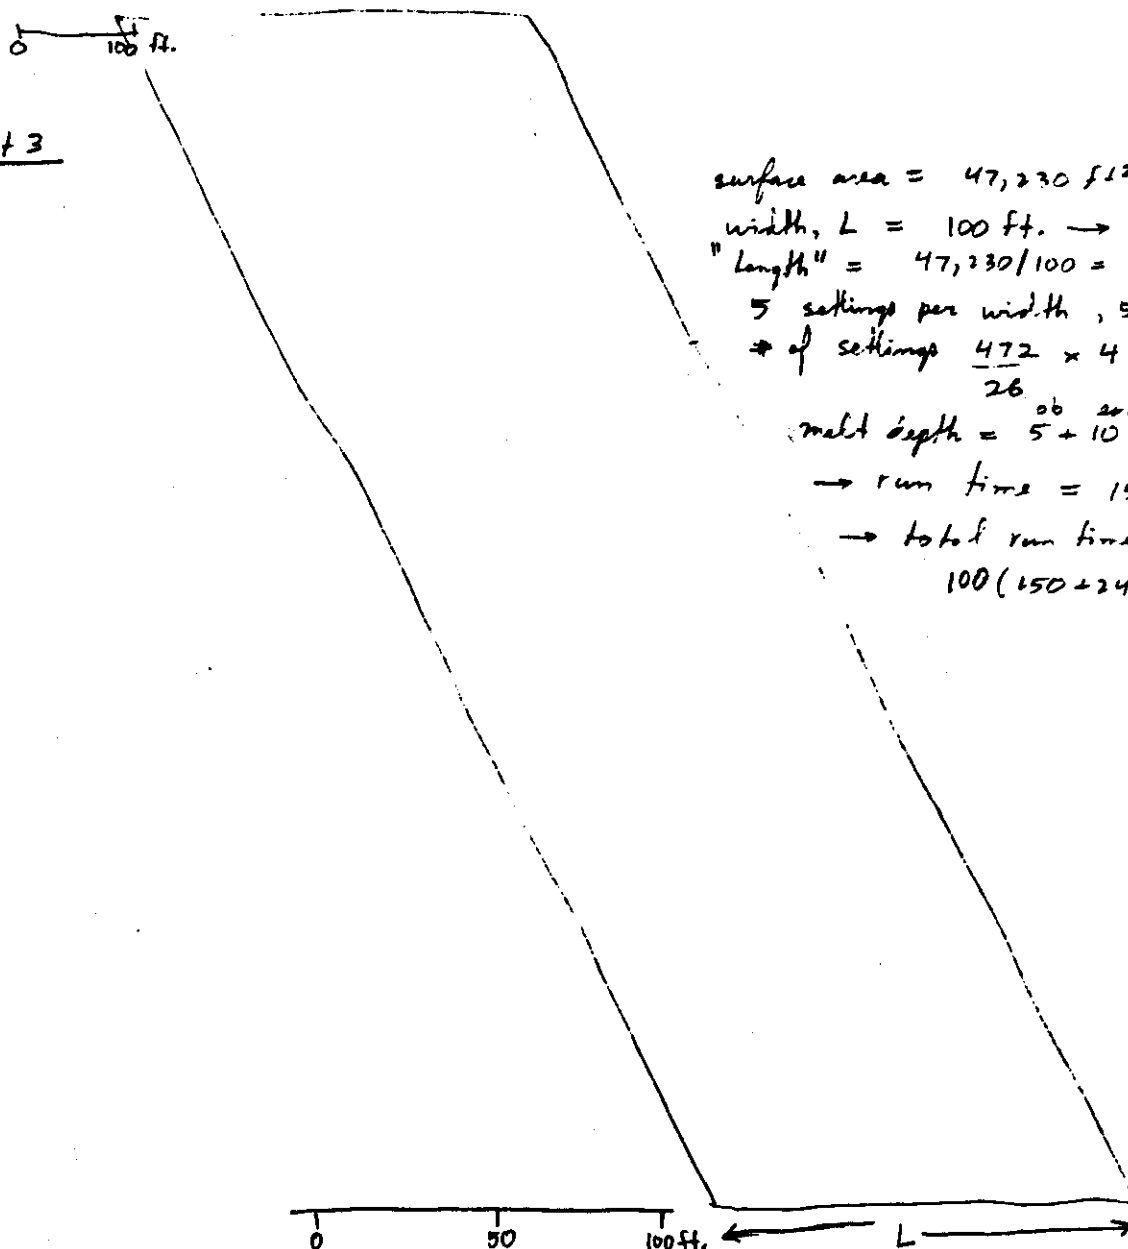 0 100 ft.
t 3
surface area = 47,230 ft2
width, L = 100 ft. →
"Length" = 47,230/100 =
5 settings per width, 5
# of settings 472 x 4
26
melt depth = 5 + 10
→ run time = 15
→ total run time
100 (150 + 24
0 50 100 ft. L